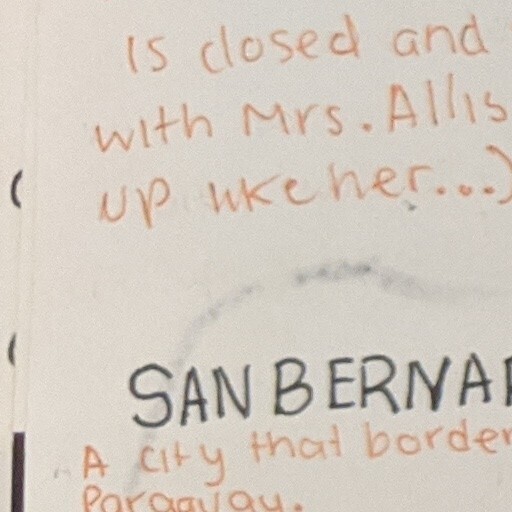 is closed and
with Mrs. Allis
up like her...)
SAN BERNA
A city that border
Paraguay.